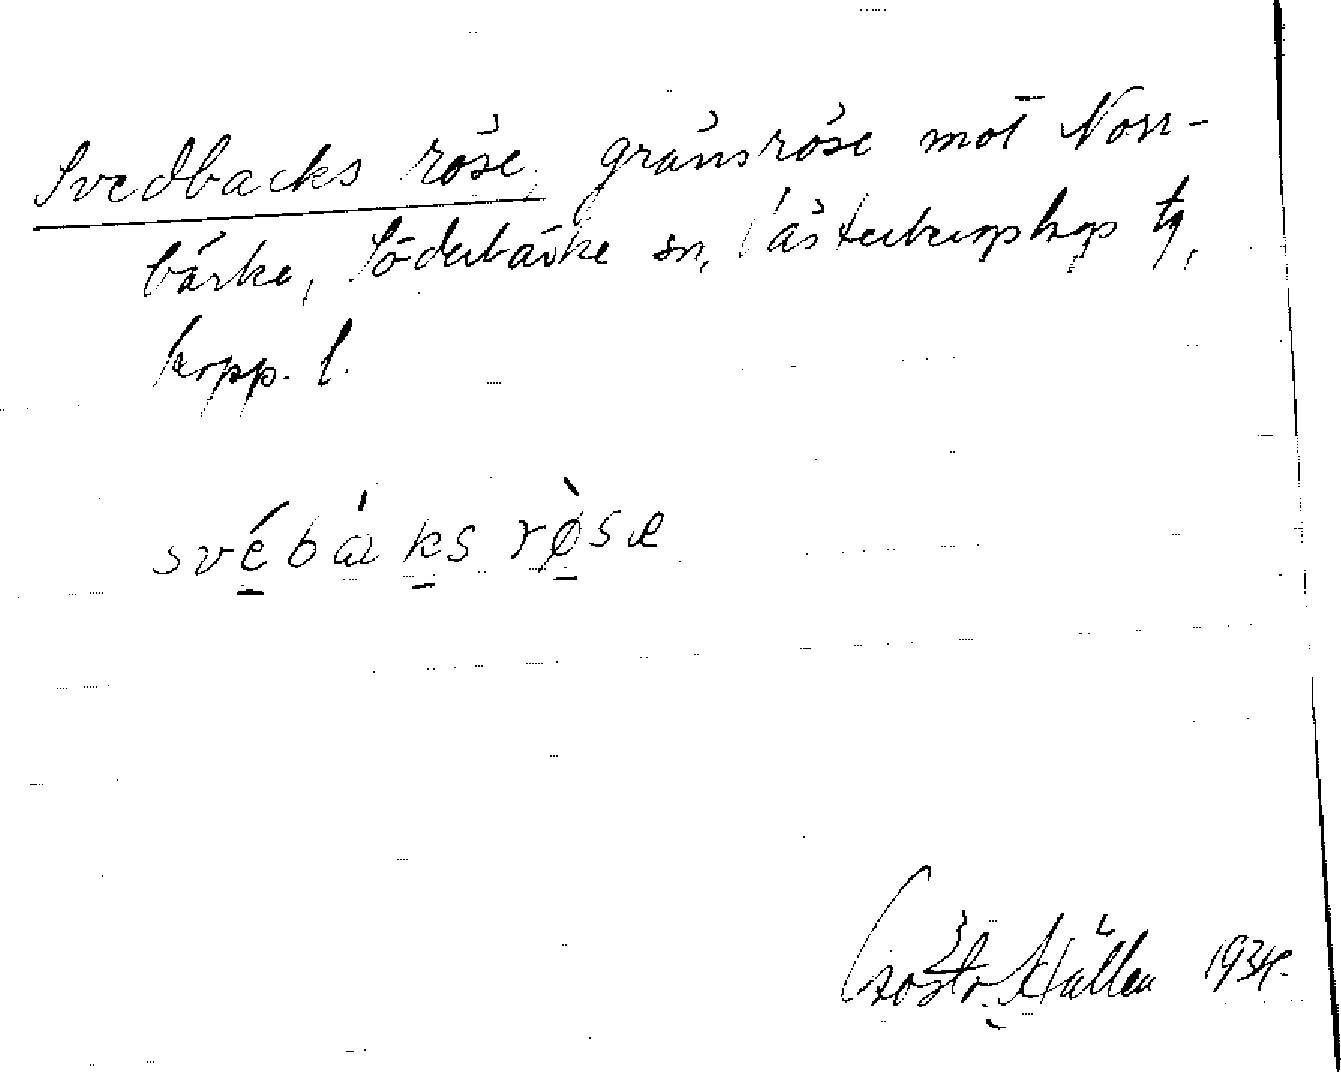 Svedbacks röse, gränsröse mot Norr-
bärke, Söderbärke sn, Västerbergslags tg,
Kopp. l.
svébáks ròse
Hällen 1934.